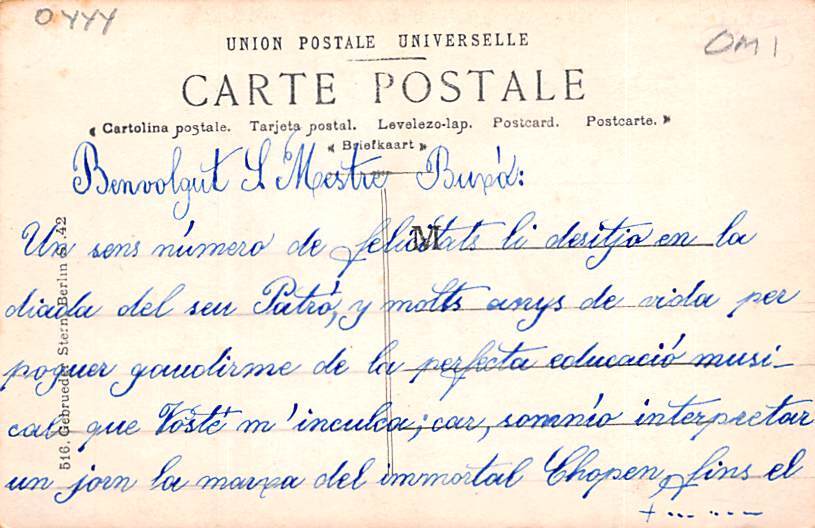 0444
OM 1
UNION POSTALE UNIVERSELLE
CARTE POSTALE
Cartolina postale. Tarjeta postal. Levelezo-lap. Postcard. Postcarte.
Briefkaart
Benvolgut S. Mestre Buxó:
Un sens número de felicitats li desitjo en la
diada del seu Patró, y molts anys de vida per
poguer gaudirme de la perfecta educació musi-
cal que Vosté m'inculca; car, somnío interpretar
un jorn la marxa del immortal Chopen, fins el
M
516, Gebrueder Stern, Berlin S. 42